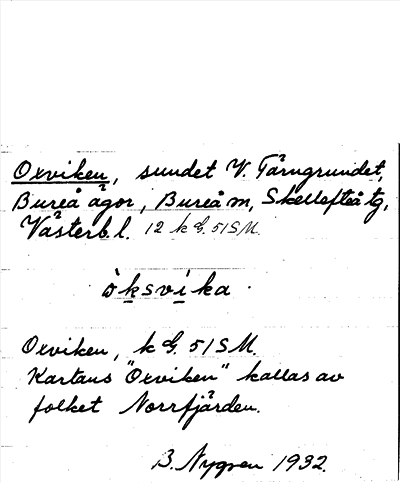 Oxviken, sundet V. Tärngrundet,
Bureå ägor, Bureå m, Skellefteå tg,
Västerb. l. 12 k G. 51 SM.
òksvika.
Oxviken, k G. 51 SM.
Kartans "Oxviken" kallas av
folket Norrfjärden.
B. Nygren 1932.